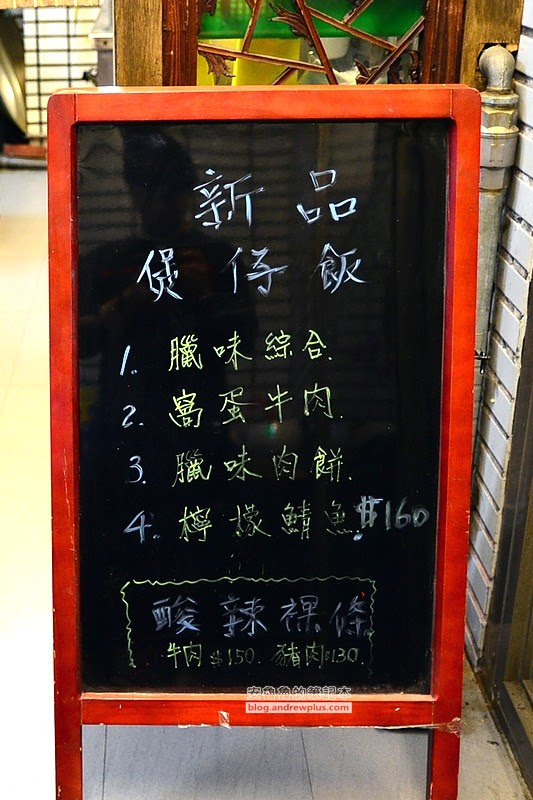 新品
煲仔飯
1. 臘味綜合.
2. 窩蛋牛肉.
3. 臘味肉餅.
4. 檸檬鯖魚 $160
酸辣粿條
牛肉 $150. 豬肉$130.
安魯魚的筆記本
blog.andrewplus.com